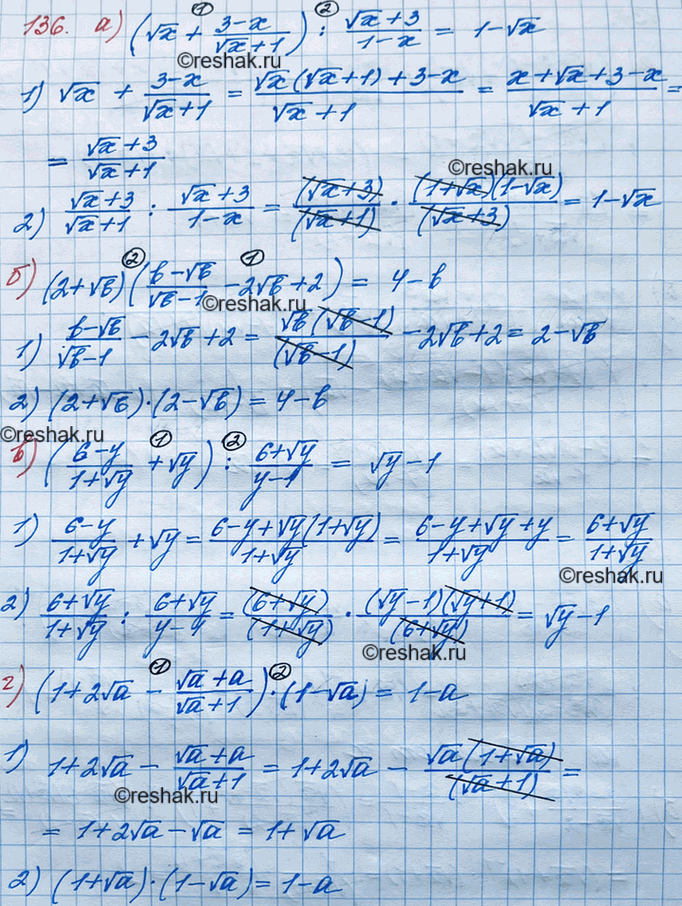 136. а) (√x + (3-x)/(√x+1)) : (√x+3)/(1-x) = 1-√x
① ②
1) √x + (3-x)/(√x+1) = (√x(√x+1)+3-x)/(√x+1) = (x+√x+3-x)/(√x+1) =
= (√x+3)/(√x+1)
©reshak.ru
2) (√x+3)/(√x+1) : (√x+3)/(1-x) = (√x+3)/(√x+1) · (1+√x)(1-√x)/(√x+3) = 1-√x
② ①
б) (2+√b)((b-√b)/(√b-1) - 2√b+2) = 4-b
©reshak.ru
1) (b-√b)/(√b-1) - 2√b+2 = √b(√b-1)/(√b-1) - 2√b+2 = 2-√b
2) (2+√b)·(2-√b) = 4-b
©reshak.ru
① ②
в) ((6-y)/(1+√y) + √y) : (6+√y)/(y-1) = √y-1
1) (6-y)/(1+√y) + √y = (6-y+√y(1+√y))/(1+√y) = (6-y+√y+y)/(1+√y) = (6+√y)/(1+√y)
©reshak.ru
2) (6+√y)/(1+√y) : (6+√y)/(y-1) = (6+√y)/(1+√y) · (√y-1)(√y+1)/(6+√y) = √y-1
©reshak.ru
① ②
г) (1+2√a - (√a+a)/(√a+1))·(1-√a) = 1-a
1) 1+2√a - (√a+a)/(√a+1) = 1+2√a - √a(1+√a)/(√a+1) =
©reshak.ru
= 1+2√a-√a = 1+√a
2) (1+√a)·(1-√a) = 1-a